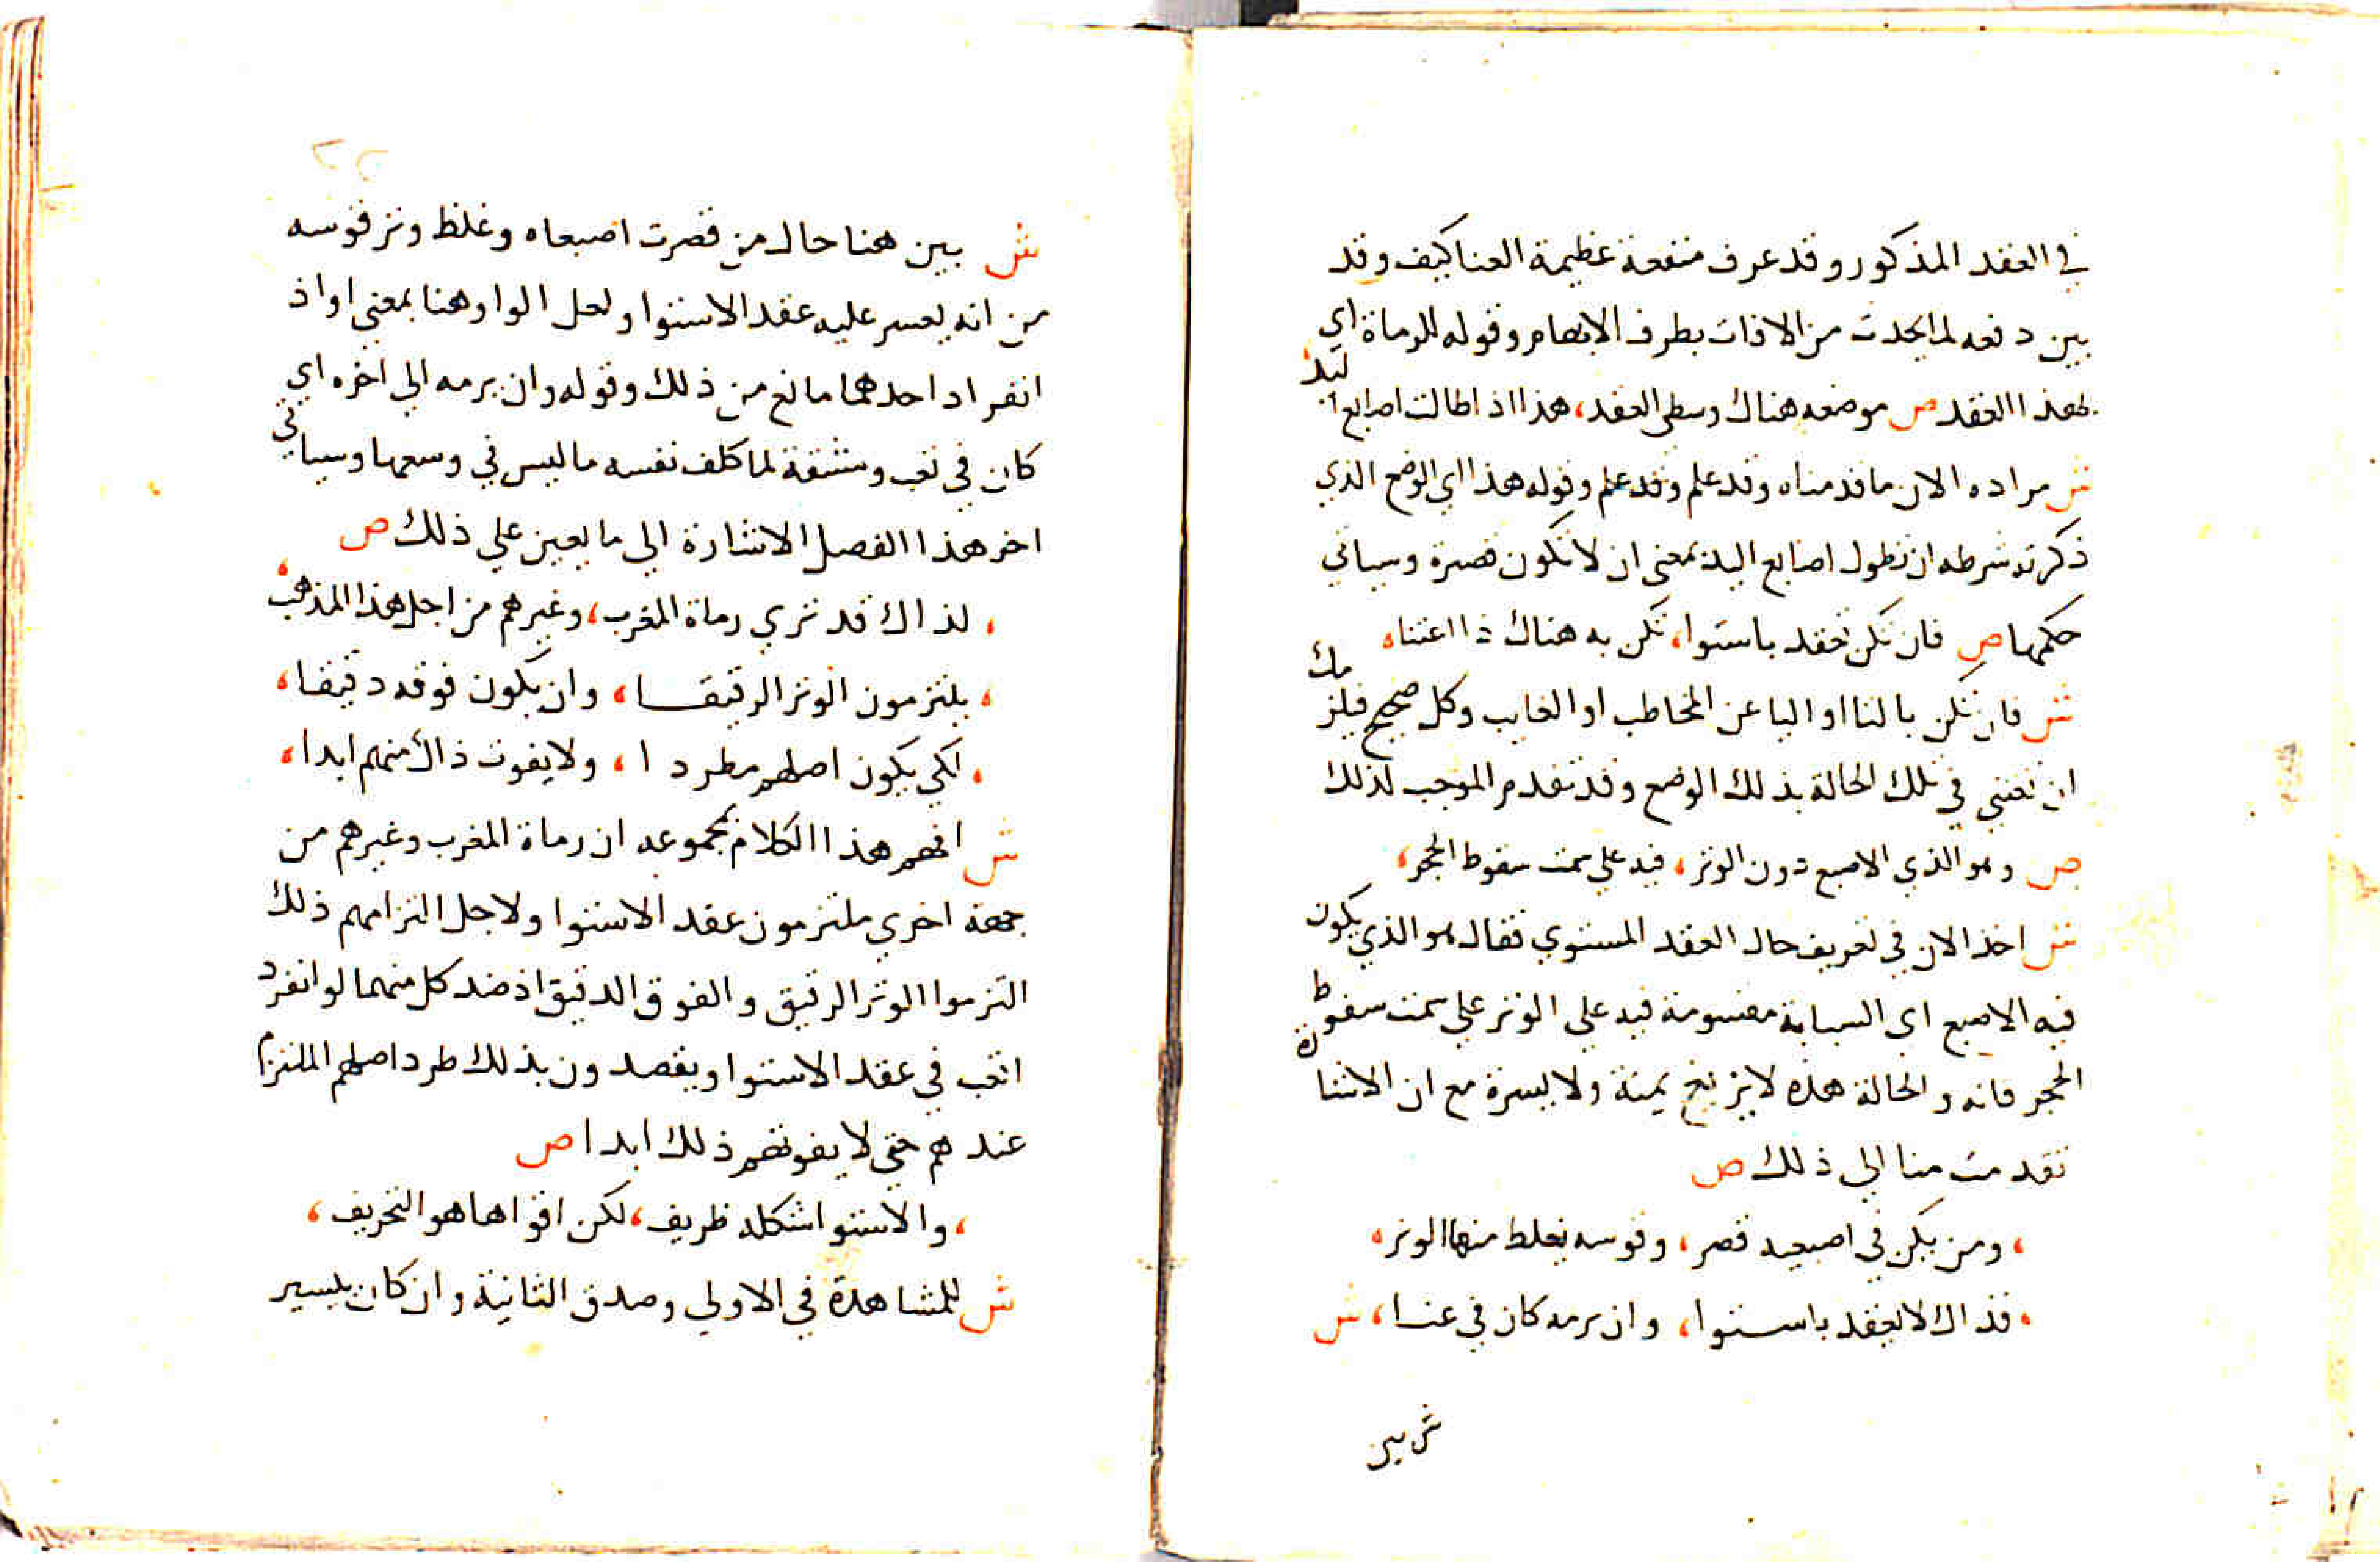 في العقد المذكور وقد عرف منفعة عظيمة العنا كيف وقد
بين دفعه لما يحدث من الافات بطرف الابهام وقوله للرماة اي
بهذا العقد ص موضعه هناك وسطى العقد، هذا اذا طالت اصابع اليد،
ش مراده الان ما قدمناه وقد علم وقد علم وقوله هذا اي الوضع الذي
ذكرته شرطه ان تطول اصابع اليد بمعنى ان لا تكون قصيرة وسياتي
حكمها ص فان تكن تعقد باستوا، تكن به هناك ذا اعتناء
ش فان تكن بالتا او اليا عن المخاطب او الغايب وكل صحيح فيلزمك
ان تعتني في تلك الحالة بذلك الوضع وقد تقدم الموجب لذلك
ص وهو الذي الاصبع دون الوتر، فيه على سمت سقوط الحجر،
ش اخذ الان في تعريف حال العقد المستوي فقال هو الذي يكون
فيه الاصبع اي السبابة مضمومة فيه على الوتر على سمت سقوط
الحجر فانه والحالة هذه لا يزيغ يمنة ولا يسرة مع ان الاشارة
تقدمت منا الى ذلك ص
، ومن يكن في اصبعيه قصر، وقوسه يغلظ منها الوتر،
، فذاك لا يعقد باستوا، وان يرمه كان في عنا، ش
ش بين
٢٢
ش بين هنا حال من قصرت اصبعاه وغلظ وتر قوسه
من انه يعسر عليه عقد الاستوا ولعل الواو هنا بمعنى او اذ
انفراد احدهما مانع من ذلك وقوله وان يرمه الى اخره اي
كان في تعب ومشقة لما كلف نفسه ما ليس في وسعها وسياتي
اخر هذا الفصل الاشارة الى ما يعين على ذلك ص
، لذاك قد ترى رماة المغرب، وغيرهم من اجل هذا المذهب،
، يلتزمون الوتر الرقيقا، وان يكون فوقه دقيقا،
، لكي يكون اصلهم مطردا، ولا يفوت ذاك منهم ابدا،
ش افهم هذا الكلام بمجموعه ان رماة المغرب وغيرهم من
جهة اخري ملتزمون عقد الاستوا ولاجل التزامهم ذلك
التزموا الوتر الرقيق والفوق الدقيق اذ ضد كل منهما لو انفرد
اتعب في عقد الاستوا ويقصدون بذلك طرد اصلهم الملتزم
عندهم حتى لا يفوتهم ذلك ابدا ص
، والاستوا شكله ظريف، لكن اقواها هو التحريف،
ش للمشاهدة في الاولي وصدق الثانية وان كان يسير